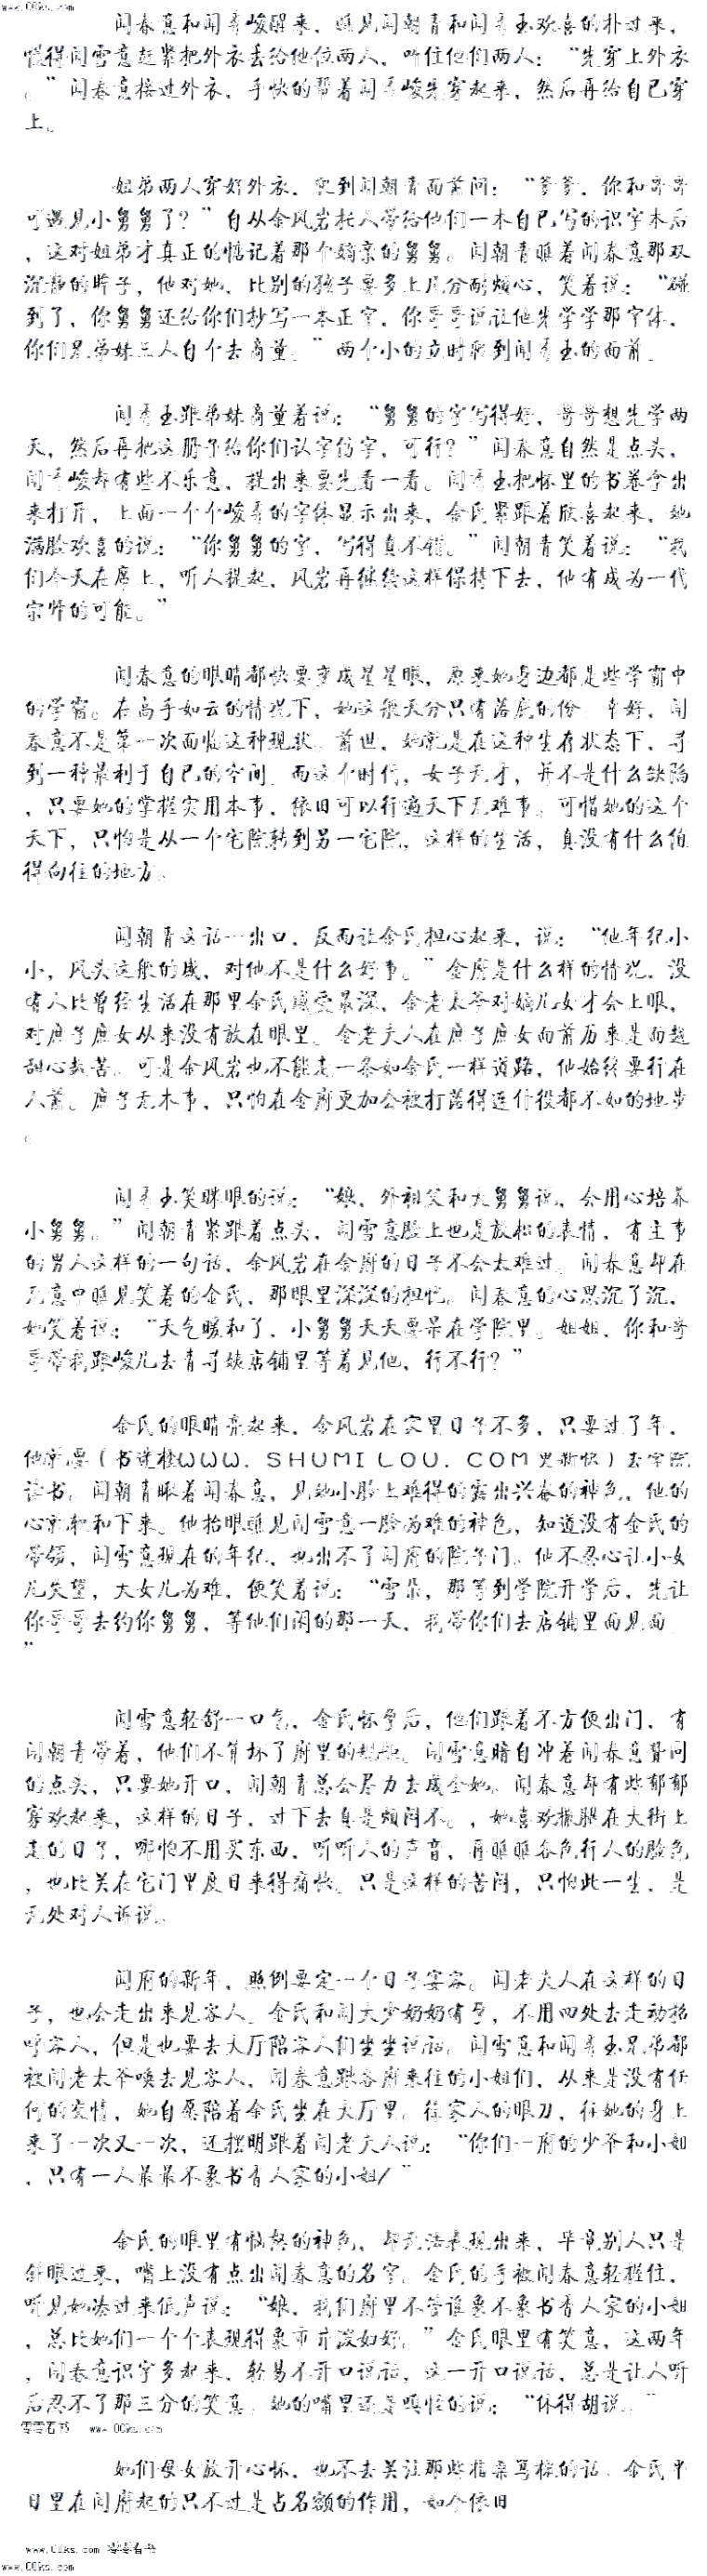 www.00ks.com
闻春意和闻秀峻醒来，瞧见闻朝青和闻秀玉欢喜的扑过来，
慌得闻雪意赶紧把外衣丢给他位两人，吓住他们两人：“先穿上外衣
。”闻春意接过外衣，手快的帮着闻秀峻先穿起来，然后再给自已穿
上。
姐弟两人穿好外衣，来到闻朝青面前问：“爹爹，你和哥哥
可遇见小舅舅了？”自从金风岩托人带给他们一本自已写的识字本后
，这对姐弟才真正的惦记着那个嫡亲的舅舅。闻朝青瞧着闻春意那双
沉静的眸子，他对她，比别的孩子要多上几分耐烦心，笑着说：“碰
到了，你舅舅还给你们抄写一本正字，你哥哥说让他先学学那字体，
你们兄弟妹三人自个去商量。”两个小的立时移到闻秀玉的面前。
闻秀玉跟弟妹商量着说：“舅舅的字写得好，哥哥想先学两
天，然后再把这册子给你们认字仿字，可行？”闻春意自然是点头，
闻秀峻却有些不乐意，提出来要先看一看。闻秀玉把怀里的书卷拿出
来打开，上面一个个峻秀的字体显示出来，金氏紧跟着欣喜起来，她
满脸欢喜的说：“你舅舅的字，写得真不错。”闻朝青笑着说：“我
们今天在席上，听人提起，风岩再继续这样保持下去，他有成为一代
宗师的可能。”
闻春意的眼睛都快要变成星星眼，原来她身边都是些学霸中
的学霸。在高手如云的情况下，她这般天分只有落底的份。幸好，闻
春意不是第一次面临这种现状。前世，她就是在这种生存状态下，寻
到一种最利于自已的空间。而这个时代，女子无才，并不是什么缺陷
，只要她的掌握实用本事，依旧可以行遍天下无难事。可惜她的这个
天下，只怕是从一个宅院转到另一宅院，这样的生活，真没有什么值
得向往的地方。
闻朝青这话一出口，反而让金氏担心起来，说：“他年纪小
小，风头这般的盛，对他不是什么好事。”金府是什么样的情况，没
有人比曾经生活在那里金氏感受最深，金老太爷对嫡儿女才会上眼，
对庶子庶女从来没有放在眼里。金老夫人在庶子庶女面前历来是面越
甜心越苦。可是金风岩也不能走一条如金氏一样道路，他始终要行在
人前。庶子无本事，只怕在金府更加会被打落得连仆役都不如的地步
。
闻秀玉笑眯眼的说：“娘，外祖父和大舅舅说，会用心培养
小舅舅。”闻朝青紧跟着点头，闻雪意脸上也是放松的表情，有主事
的男人这样的一句话，金风岩在金府的日子不会太难过。闻春意却在
无意中瞧见笑着的金氏，那眼里深深的担忧。闻春意的心思沉了沉，
她笑着说：“天气暖和了，小舅舅天天要呆在学院里。姐姐，你和哥
哥带我跟峻儿去青寻姨店铺里等着见他，行不行？”
金氏的眼睛亮起来，金风岩在家里日子不多，只要过了年，
他就要（书迷楼ＷＷＷ．ＳＨＵＭＩＬＯＵ．ＣＯＭ更新快）去学院
读书。闻朝青瞅着闻春意，见她小脸上难得的露出兴奋的神色，他的
心就软和下来。他抬眼瞧见闻雪意一脸为难的神色，知道没有金氏的
带领，闻雪意现在的年纪，也出不了闻府的院子门。他不忍心让小女
儿失望，大女儿为难，便笑着说：“雪朵，那等到学院开学后，先让
你哥哥去约你舅舅，等他们闲的那一天，我带你们去店铺里面见面。
”
闻雪意轻舒一口气，金氏怀孕后，他们跟着不方便出门，有
闻朝青带着，他们不算坏了府里的规矩。闻雪意暗自冲着闻春意赞同
的点头，只要她开口，闻朝青总会尽力去成全她。闻春意却有些郁郁
寡欢起来，这样的日子，过下去真是烦闷不。，她喜欢撒腿在大街上
走的日子，哪怕不用买东西，听听人的声音，再瞧瞧各色行人的脸色
，也比关在宅门里度日来得痛快。只是这样的苦闷，只怕此一生，是
无处对人诉说。
闻府的新年，照例要定一个日子宴客。闻老夫人在这样的日
子，也会走出来见客人。金氏和闻大少奶奶有孕，不用四处去走动招
呼客人，但是也要去大厅陪客人们坐坐说话。闻雪意和闻秀玉兄弟都
被闻老太爷唤去见客人，闻春意跟各府来往的小姐们，从来是没有任
何的交情，她自愿陪着金氏坐在大厅里。待客人的眼刀，往她的身上
来了一次又一次，还摆明跟着闻老夫人说：“你们一府的少爷和小姐
，只有一人最最不象书香人家的小姐/”
金氏的眼里有恼怒的神色，却无法表现出来，毕竟别人只是
斜眼过来，嘴上没有点出闻春意的名字。金氏的手被闻春意轻握住，
听见她凑过来低声说：“娘，我们府里不管谁象不象书香人家的小姐
，总比她们一个个表现得象市井泼妇好。”金氏眼里有笑意，这两年
，闻春意识字多起来，轻易不开口说话，这一开口说话，总是让人听
后忍不了那三分的笑意。她的嘴里还是嗔怪的说：“休得胡说。”
零零看书 www.00ks.com
她们母女放开心怀，也不去关注那些指桑骂槐的话。金氏平
日里在闻府起的只不过是占名额的作用，如今依旧
www.00ks.com 零零看书
www.00ks.com